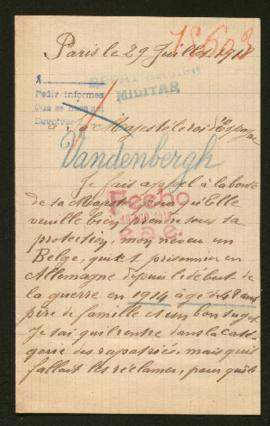 1860 2
Paris le 29 Juillet 1918
A
Pedir informes
MILITAR
à sa Majesté le roi d'Espagne
Vandenbergh
Je fais appel à la bonté
de sa Majesté pour qu'Elle
veuille bien prendre sous sa
protection, mon neveu un
Belge, qui est prisonnier en
Allemagne depuis le début de
la guerre en 1914 âgé de 48 ans
père de famille et un bon sujet
Je sai qu'il rentre dans la Caté
gorie des rapatriés, mais qu'il
fallait les réclamer, pour qu'ils
Fecho